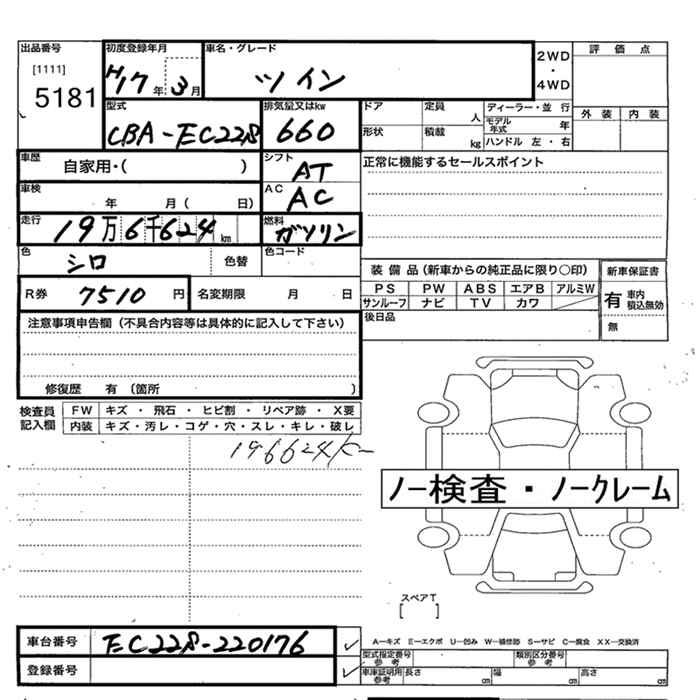 出品番号 初度登録年月 車名・グレード 2WD・4WD 評価点
[1111] 5181 H17年3月 ツイン
外装 内装
型式 CBA-EC22S 排気量又はkw 660 ドア 定員 人 ディーラー・並行
形状 積載 kg モデル年式 年
ハンドル 左・右
車歴 自家用・( ) シフト AT 正常に機能するセールスポイント
車検 年 月( 日) AC AC
走行 19万6千624km 燃料 ガソリン
色 シロ 色替 色コード
装備品(新車からの純正品に限り〇印) 新車保証書
R券 7510円 名変期限 月 日
PS PW ABS エアB アルミW
サンルーフ ナビ TV カワ
有 車内 積込無効
無
後日品
注意事項申告欄(不具合内容等は具体的に記入して下さい)
修復歴 有(箇所 )
検査員記入欄 FW キズ・飛石・ヒビ割・リペア跡・X要
内装 キズ・汚レ・コゲ・穴・スレ・キレ・破レ
196624K
ノー検査・ノークレーム
スペアT
[ ]
車台番号 EC22S-220176
登録番号
A―キズ E―エクボ U―凹み W―補修跡 S―サビ C―腐食 XX―交換済
型式指定番号 参考 類別区分番号 参考
車庫証明用 参考 長さ cm 幅 cm 高さ cm